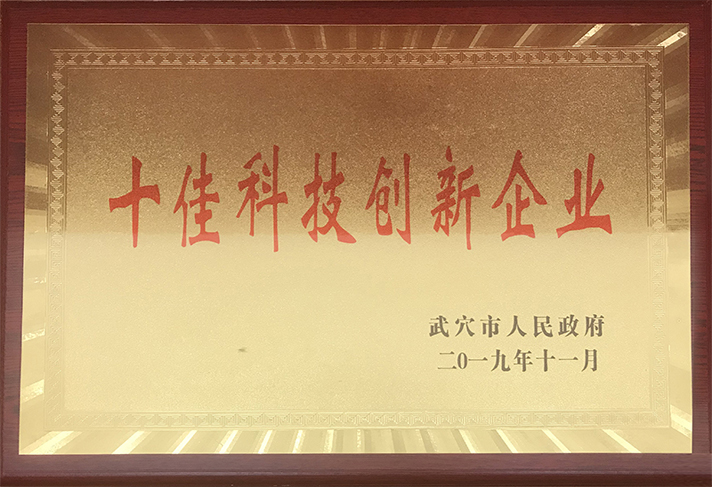 十佳科技创新企业
武穴市人民政府
二0一九年十一月